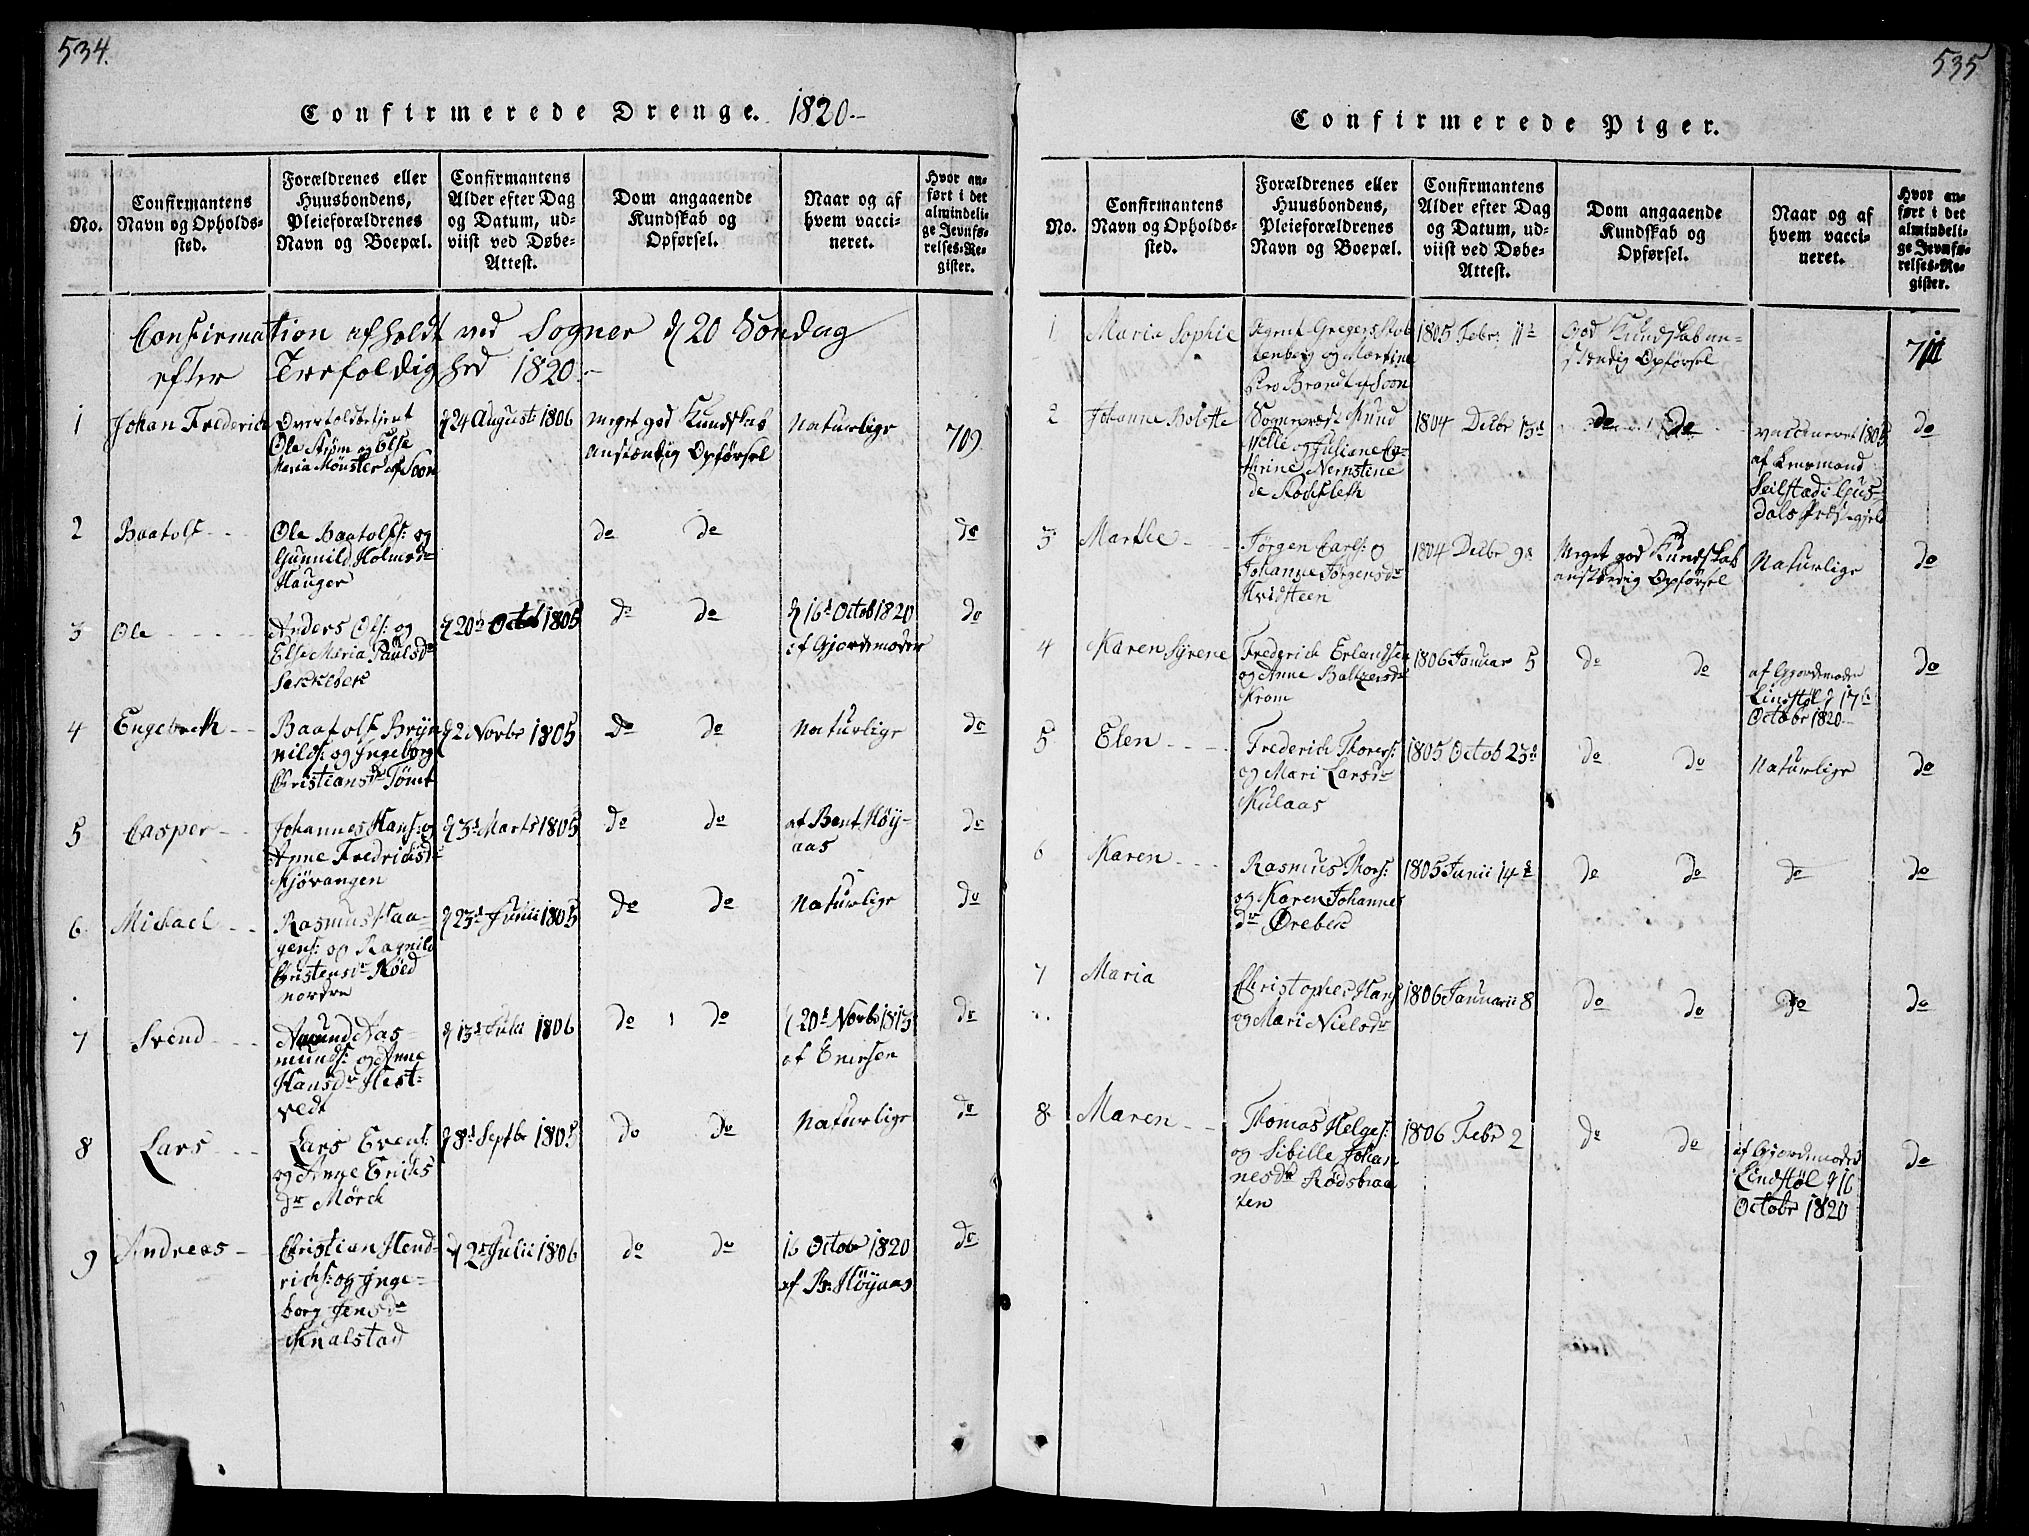 534.
Confirmerede Drenge. 1820.-
No.
Confirmantens
Navn og Opholds-
sted.
Forældrenes eller
Huusbondens,
Pleieforældrenes
Navn og Boepæl.
Confirmantens
Alder efter Dag
og Datum, ud-
viist ved Døbe-
Attest.
Dom angaaende
Kundskab og
Opførsel.
Naar og af
hvem vacci-
neret.
Hvor an-
ført i det
almindeli-
ge Jevnfø-
relses-Re-
gister.
Confirmation afholdt ved Sogner d 20 Søndag
efter Trefoldighed 1820.-
1
Johan Frederick
Overtoldbetjent
Ole Strøm og Else
Maria Mønster af Soon
d 24 August 1806
Meget god Kundskab
Anstændig Opførsel
Naturlige
709
2
Baatolf - - -
Ole Baatolfs: og
Gunnild Holmsdr
Hauger
do do
do
3
Ole - - - -
Anders Ols: og
Else Maria Paulsdr
Sækkebek
d 20de Octob 1805
do do
d 16d Octob 1820
af Gjordemoder
do
4
Engebreth - -
Baatolf Bryn
nilds: og Ingeborg
Christiansdr Tømt
d 2 Novbr 1805
do do
Naturlige
do
5
Casper - -
Johannes Hans: og
Anne Fredriksdr
Kjøvangen
d 3d Marts 1805
do do
af Bent Høy-
aas
do
6.
Michael - -
Rasmus Haa-
gens: og Ragnild
Christensdr Røed
nordre
d 23d Junii 1805
do do
Naturlige
do
7
Svend - - -
Amund Aas-
munds: og Anne
Hansdr Hest-
vedt
d 13d Julii 1806
do do
d 20d Novbr 1815
af Enersen
do
8
Lars - - -
Lars Evens:
og Anne Erichs
dr Mörck
d 8d Septbr 1805
do do
Naturlige
do
9
Andreas -
Christian Hend-
richs: og Inge-
borg Jensdr
Knalstad
d 2d Julii 1806
do do
16 Octob 1820
af B. Höyaas
do
535
Confirmerede Piger.
No.
Confirmantens
Navn og Opholds-
sted.
Forældrenes eller
Huusbondens,
Pleieforældrenes
Navn og Boepæl.
Confirmantens
Alder efter Dag
og Datum, ud-
viist ved Døbe-
Attest.
Dom angaaende
Kundskab og
Opførsel.
Naar og af
hvem vacci-
neret.
Hvor an-
ført i det
almindeli-
ge Jevnfø-
relses-Re-
gister.
1
Maria Sophie
Agent Gregers Stol
tenberg og Martine
Brandt af Soon
1805 Febr: 11te
God Kundskab an-
stændig Opførsel
2
Johanne Bolette
Sognepræst Knud
og Juliane Ca-
thrine Nernstine
de Rochfleth
1804 Decbr 13d
do do
vaccineret 1805
af Lensmand
Seilstad i Gus-
dals Præstegjeld
do
3.
Marthe - -
Jørgen Carls: og
Johanne Jørgensdr
Hvidsteen
1804 Decbr 9d
Meget god Kundskab
anstændig Opførsel
Naturlige
do
4
Karen Syrene
Frederich Erlandsen
og Anne Baltzersdr
Krom
1806 Januar 5
do do
af Gjordemoder
Lindstøl d 17de
Octobr 1820
do
5
Elen - - - -
Frederich Thorers:
og Mari Larsdr
Kulaas
1805 Octob 23d
do do
Naturlige
do
6
Karen - - -
Rasmus Thors:
og Karen Johannes
dr Ørebek
1805 Junii 14d
do do
do
do
7
Maria
Christopher Hans
og Mari Nielsdr
1806 Januarii 8
do do
do
do
8.
Maren - -
Thomas Helges:
og Sibille Johan
nesdr Rødsbraa
ten
1806 Febr 2
do do
af Gjordemoder
Lindstøl d 16
Octobr 1820
do